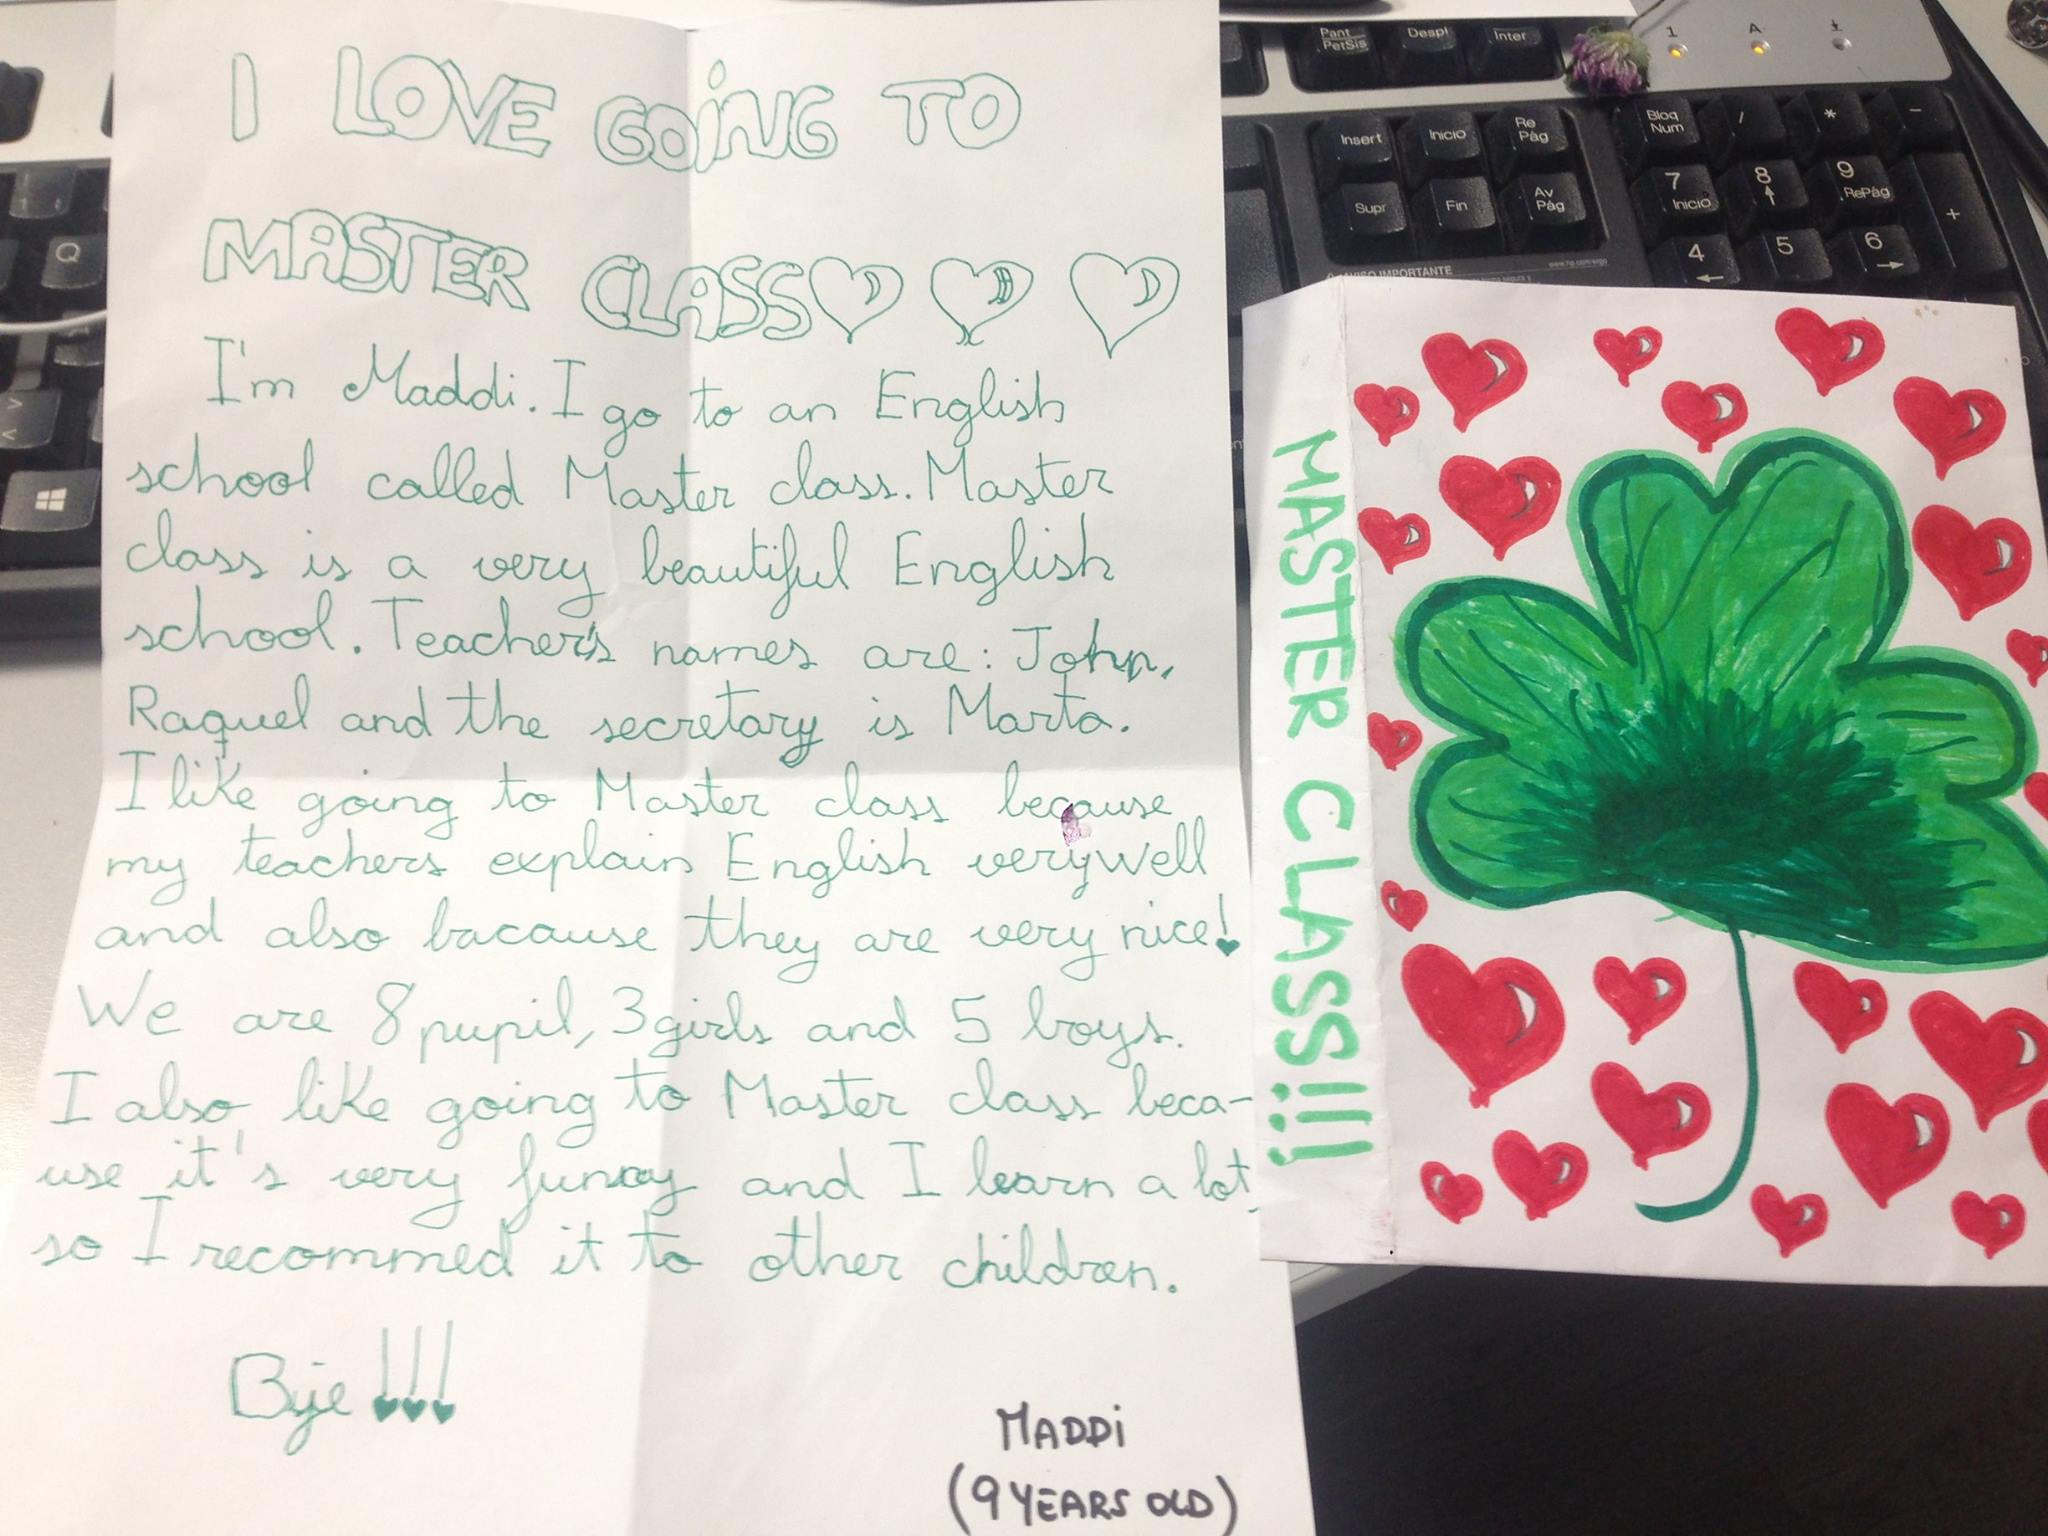 I LOVE GOING TO
MASTER CLASS
I'm Maddi. I go to an English
school called Master class. Master
class is a very beautiful English
school. Teacher's names are: John,
Raquel and the secretary is Marta.
I like going to Master class because
my teachers explain English very well
and also bacause they are very nice!
We are 8 pupil, 3 girls and 5 boys.
I also like going to Master class beca-
use it's very funny and I learn a lot,
so I recommed it to other children.
Bye!!!
MADDi
(9 YEARS OLD)
MASTER CLASS!!!
Pant
PetSis
Despl
Inter
1
A
Insert
Inicio
Re
Pág
Bloq
Num
/
*
-
Supr
Fin
Av
Pág
7
Inicio
8
9
RePág
+
4
5
6
AVISO IMPORTANTE
Q
>
<